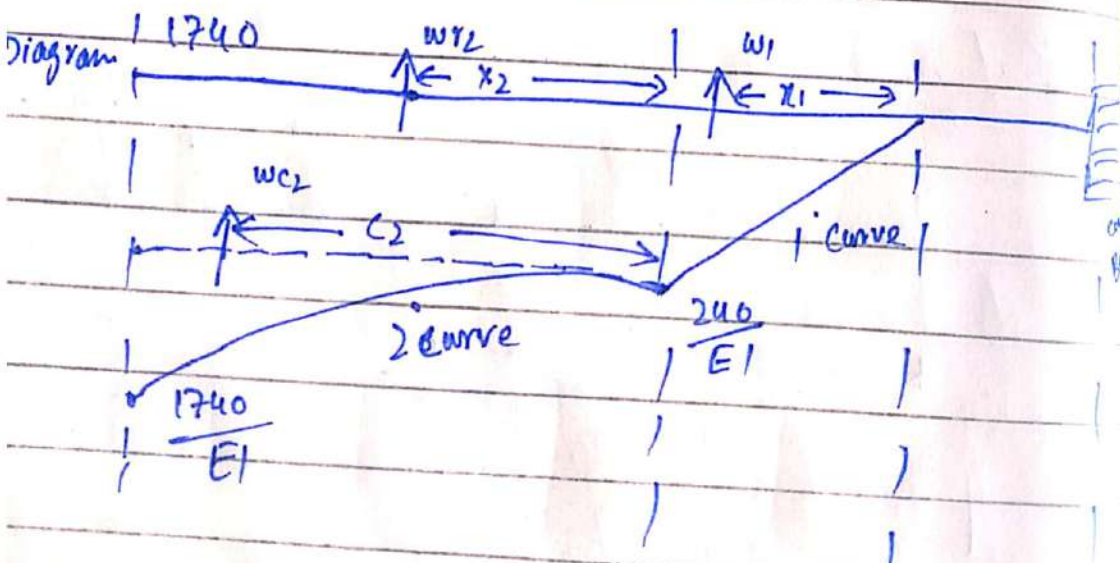 Diagram 1740
wr2 w1
x2 x1
wc2
C2
1 curve
2 curve
240
EI
1740
EI